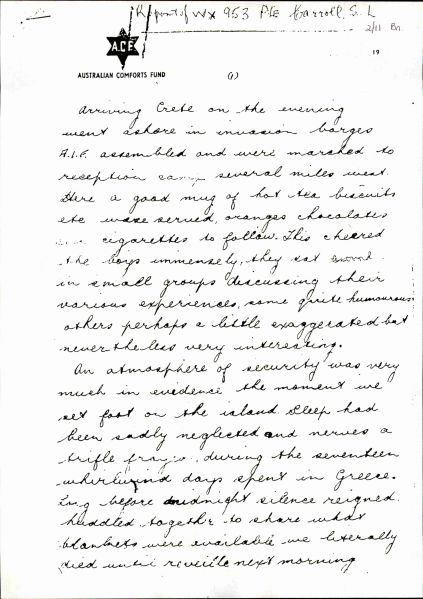 Report of WX 953 Pte Carroll, S. L
2/11 Bn.
A.C.F.
19
AUSTRALIAN COMFORTS FUND
(1)
Arriving Crete on the evening
went ashore in invasion barges
A.I.F. assembled and were marched to
reception camp several miles west.
Here a good mug of hot tea biscuits
etc were served, oranges chocolates
cigarettes to follow. This cheered
the boys immensely, they sat around
in small groups discussing their
various experiences, some quite humourous
others perhaps a little exaggerated but
never the less very interesting.
An atmosphere of security was very
much in evidence the moment we
set foot on the island. Sleep had
been sadly neglected and nerves a
trifle during the seventeen
whirlwind days spent in Greece.
Long before midnight silence reigned
huddled together to share what
blankets were available we literally
died until reveille next morning